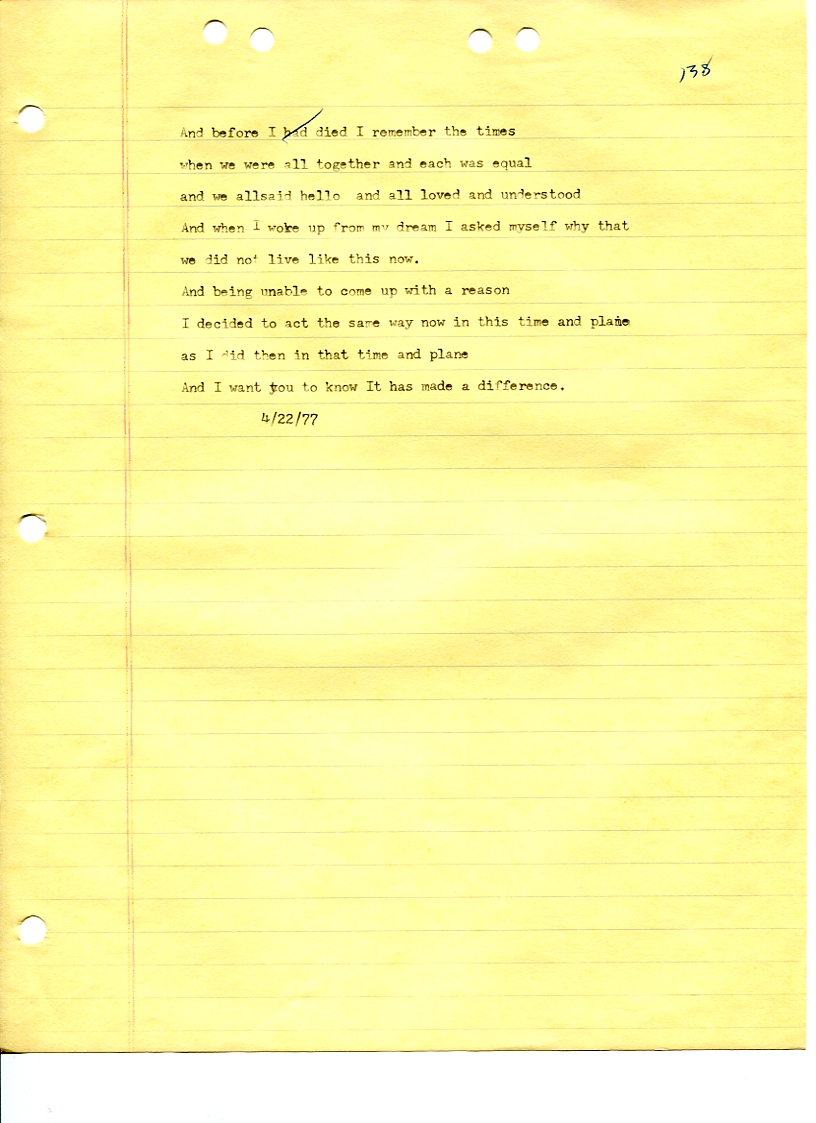 138
And before I had died I remember the times
when we were all together and each was equal
and we allsaid hello  and all loved and understood
And when I woke up from my dream I asked myself why that
we did not live like this now.
And being unable to come up with a reason
I decided to act the same way now in this time and plane
as I did then in that time and plane
And I want you to know It has made a difference.
4/22/77